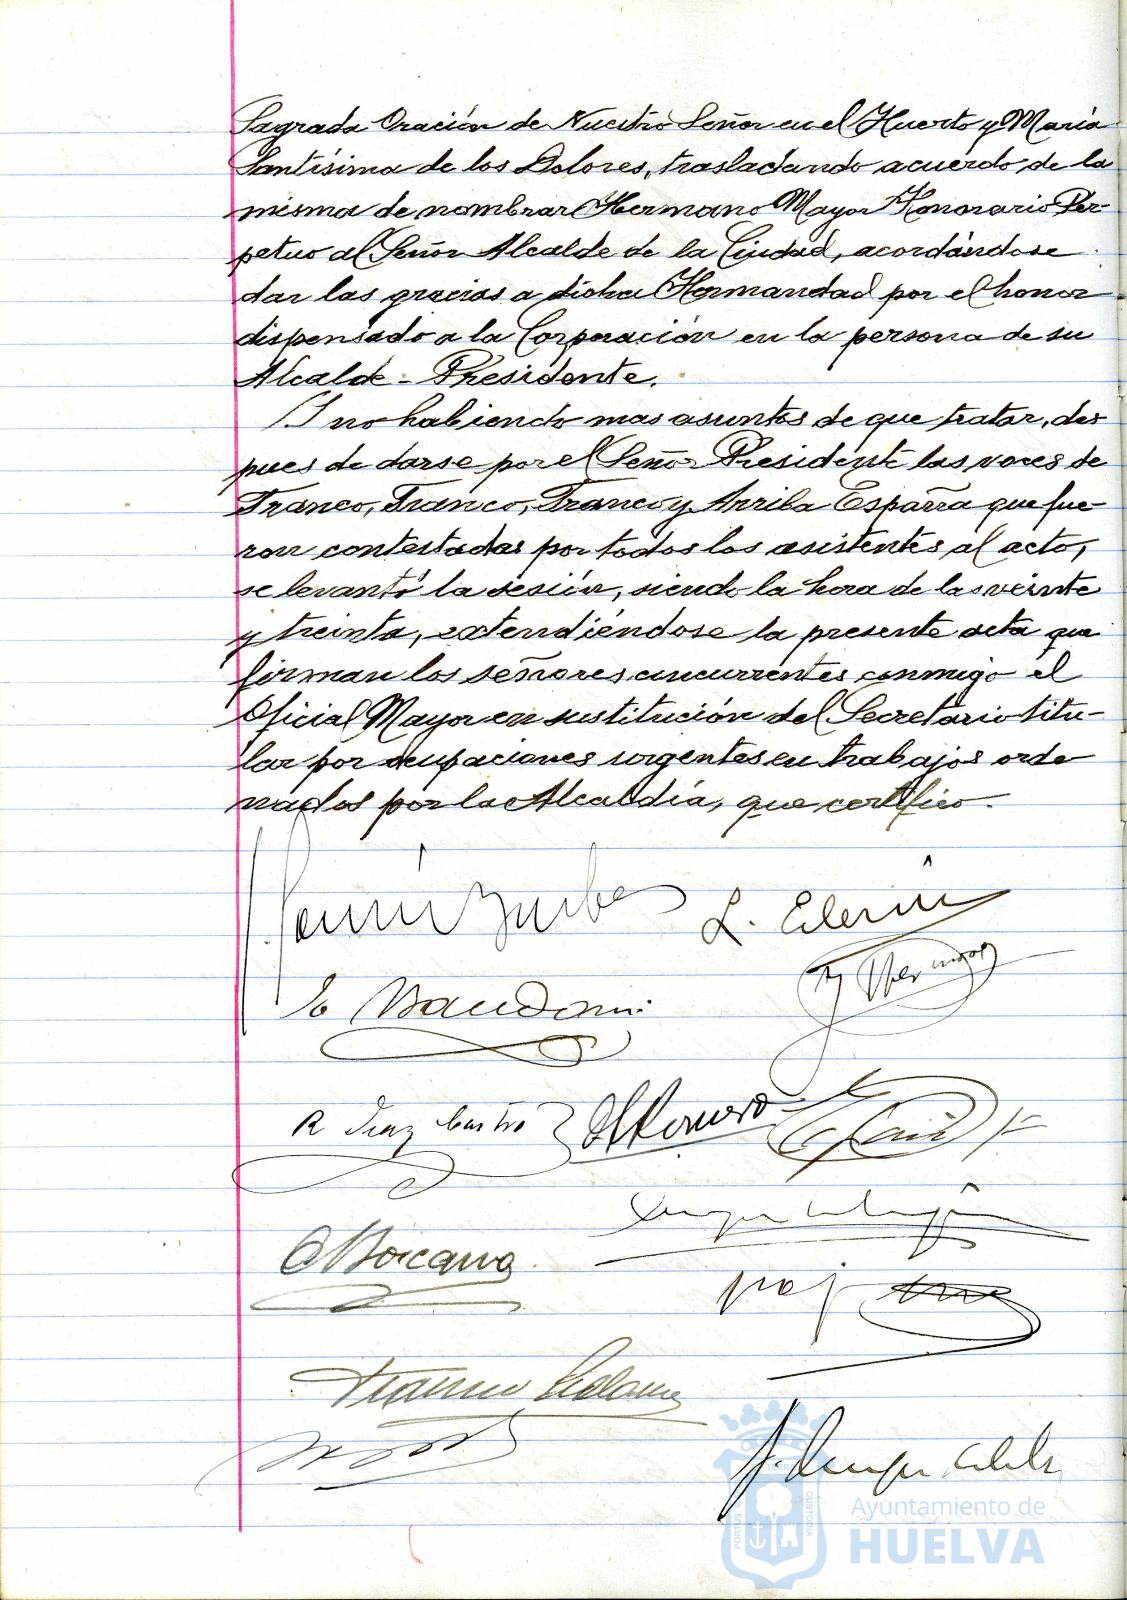 Sagrada Oración de Nuestro Señor en el Huerto y María
Santísima de los Dolores, trasladando acuerdo de la
misma de nombrar Hermano Mayor Honorario Per-
petuo al Señor Alcalde de la Ciudad, acordándose
dar las gracias a dicha Hermandad por el honor
dispensado a la Corporación en la persona de su
Alcalde-Presidente.
Y no habiendo mas asuntos de que tratar, des
pues de darse por el Señor Presidente las voces de
Franco, Franco, Franco y Arriba España que fue-
ron contestadas por todos los asistentes al acto,
se levantó la sesión, siendo la hora de las veinte
y treinta, extendiéndose la presente acta que
firman los señores concurrentes conmigo el
Oficial Mayor en sustitución del Secretario titu-
lar por ocupaciones urgentes en trabajos orde
nados por la Alcaldía, que certifico.
R Diaz Castro
Romero
Ayuntamiento de
HUELVA
PORTUS
CUSTODIA